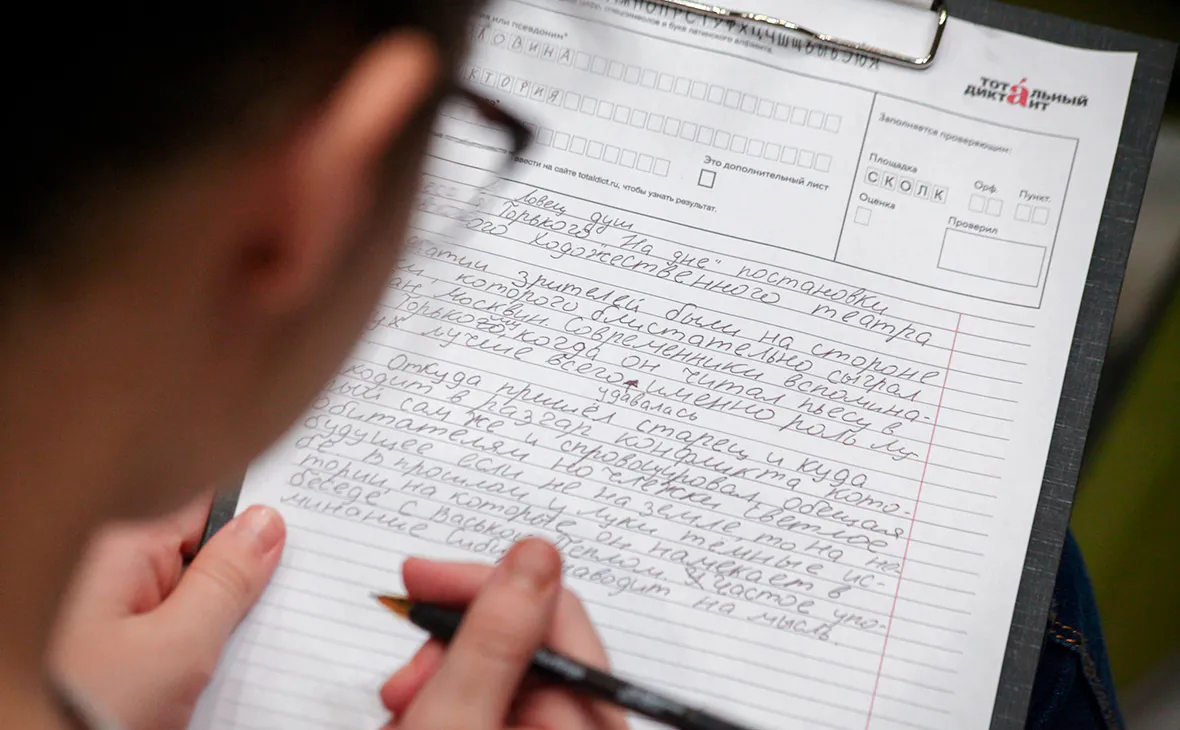 МНОПРСТУФХЦЧШЩЪЫЬЭЮЯ
цифр, спецсимволов и букв латинского алфавита.
или псевдоним*
ЛОВИНА
КТОРИЯ
Это дополнительный лист
ввести на сайте totaldict.ru, чтобы узнать результат.
тотальный
диктáнт
Заполняется проверяющим:
Площадка
СКОЛК
Орф.
Пункт.
Оценка
Проверил
Ловец душ
Горького "На дне" постановки
ого Художественного театра
зрителей были на стороне
которого блистательно сыграл
Москвин. Современники вспомина-
Горького, когда он читал пьесу в
ух лучше всего именно роль Лу
удавалась
Откуда пришёл старец и куда
ходит в разгар конфликта, кото-
рый сам же и спровоцировал, обещая
обитателям ночлежки светлое
будущее если не на земле, то на не
бе. р прошлом у Луки тёмные ис-
тории, на которое он намекает в
беседе с Васькой Пеплом. Частое упо-
минание Сиб наводит на мысль